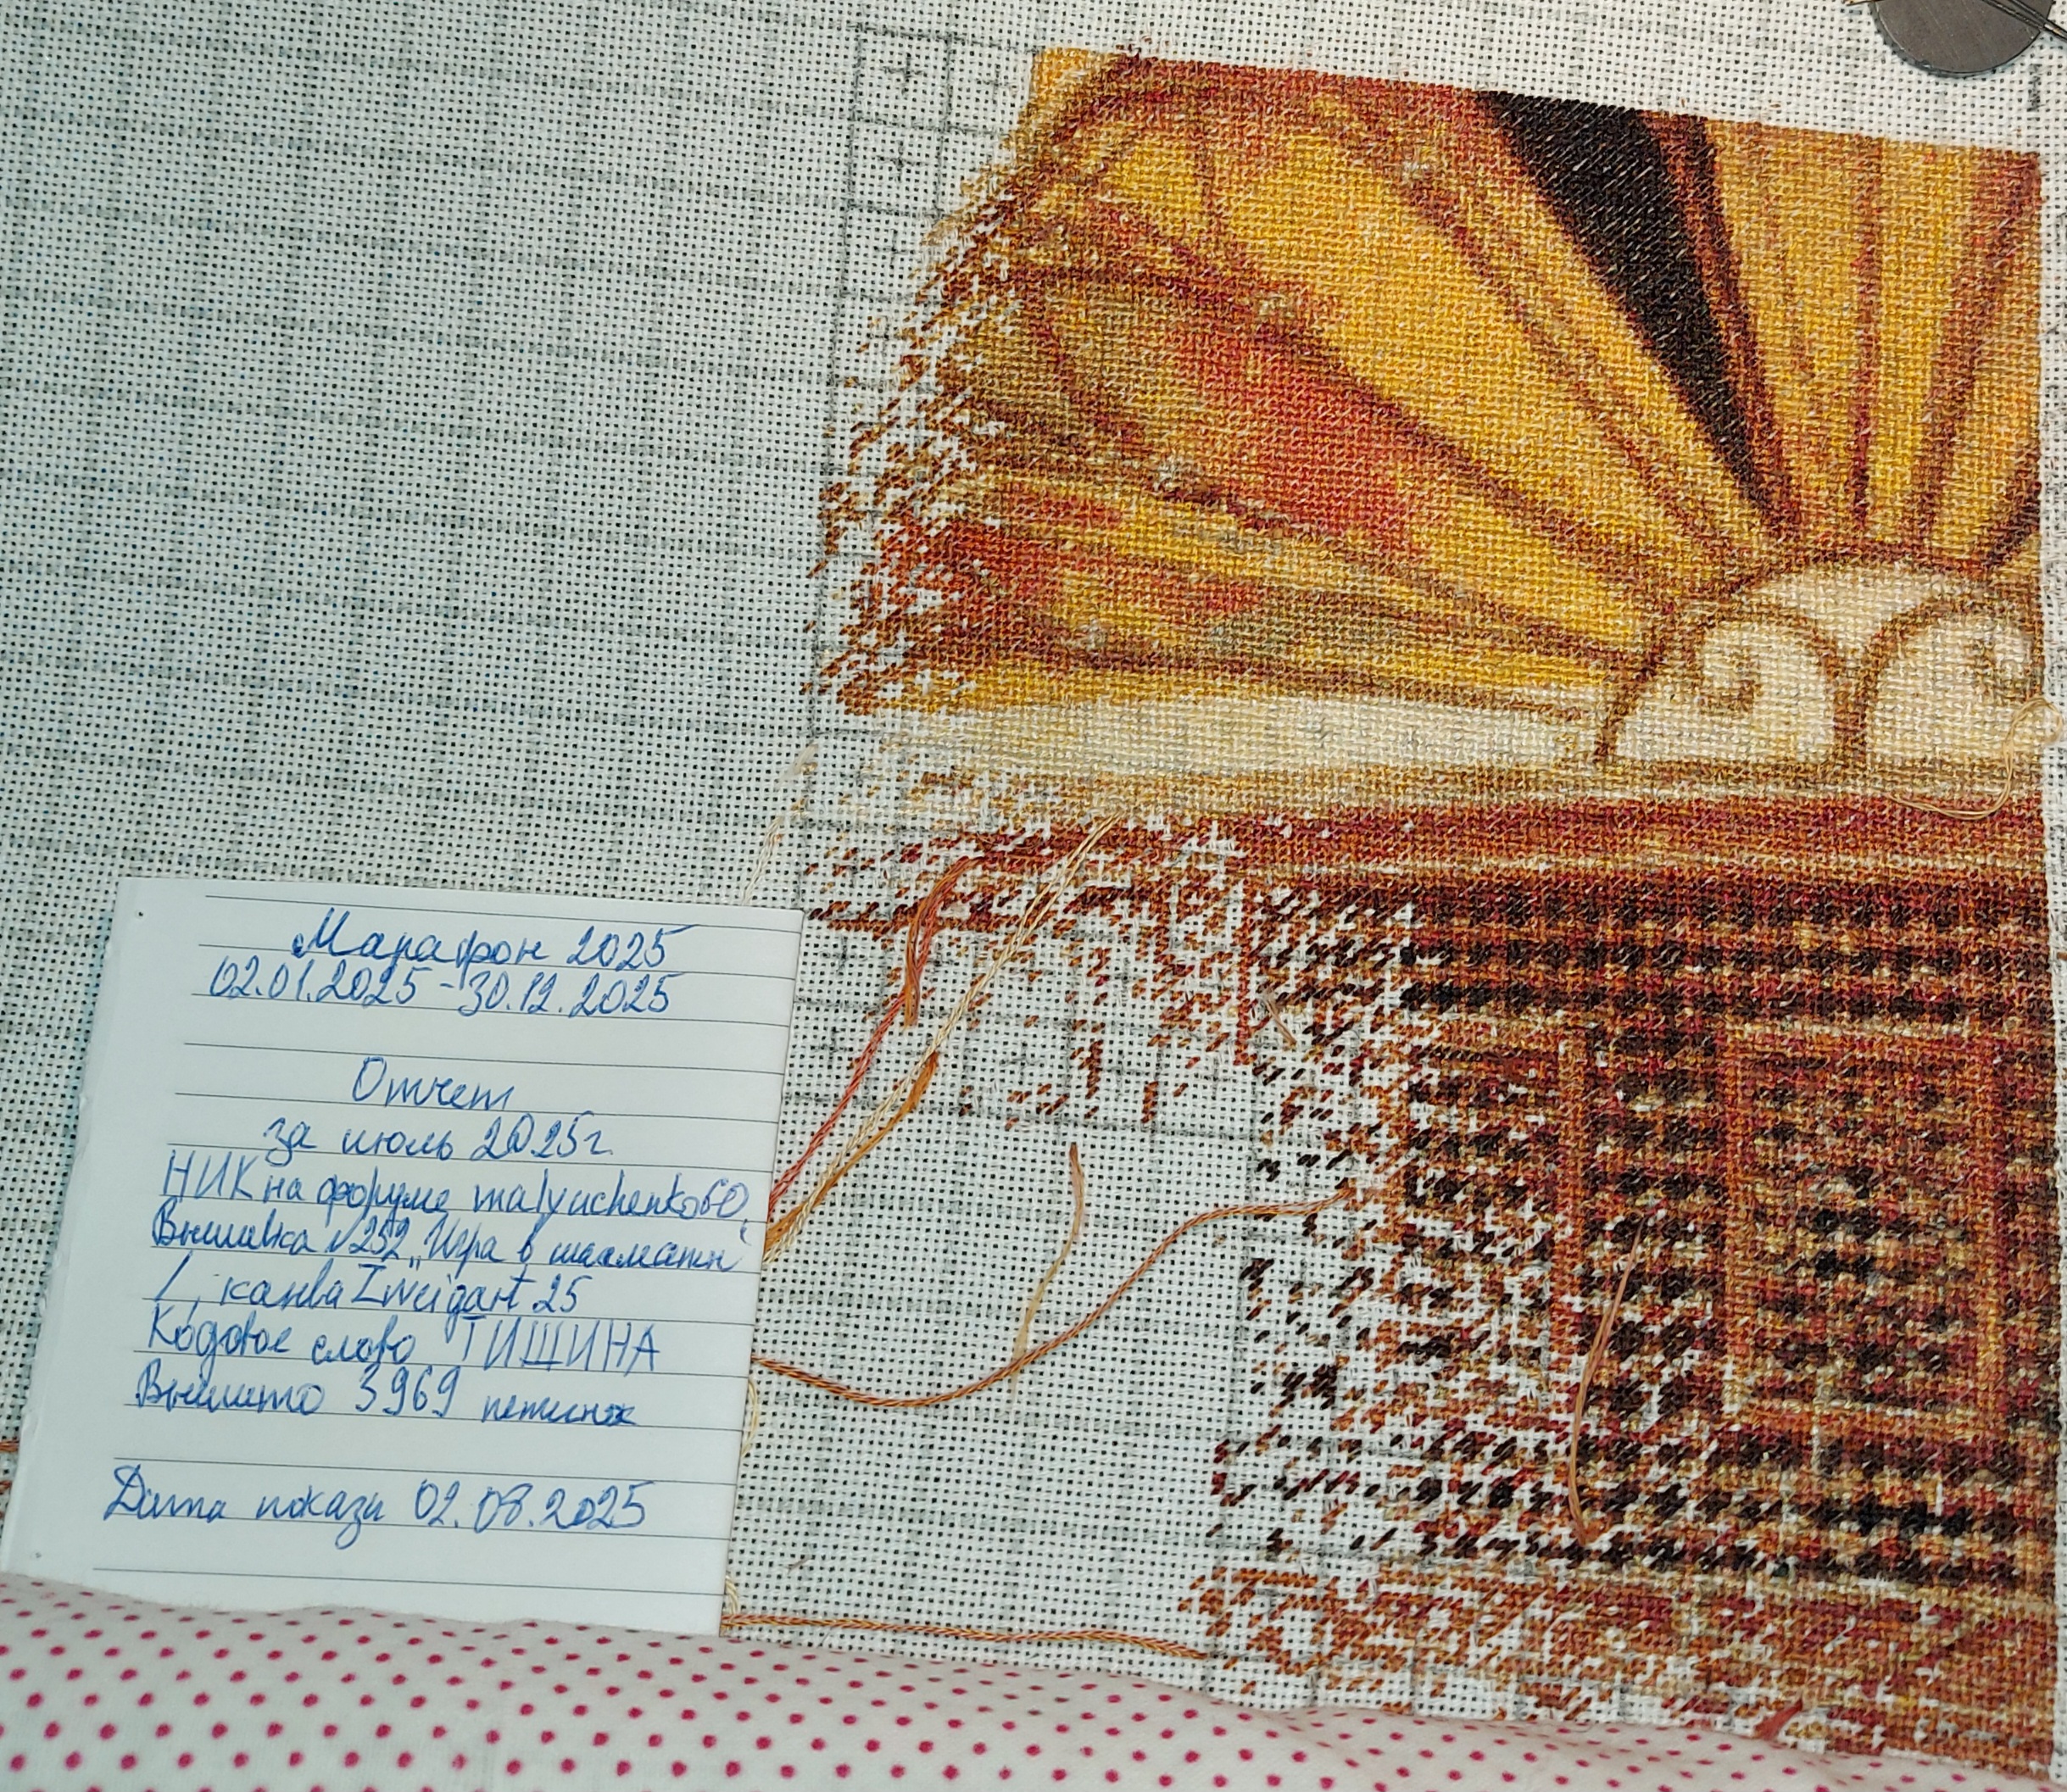 Марафон 2025
02.01.2025-30.12.2025
Отчет
за июль 2025г.
НИК на форуме malyuchenko60
Вышивка №252 „Игра в шахматы"
/, канва Zweigart 25
Кодовое слово ТИШИНА
Вышито 3969 петелек
Дата показа 02.08.2025